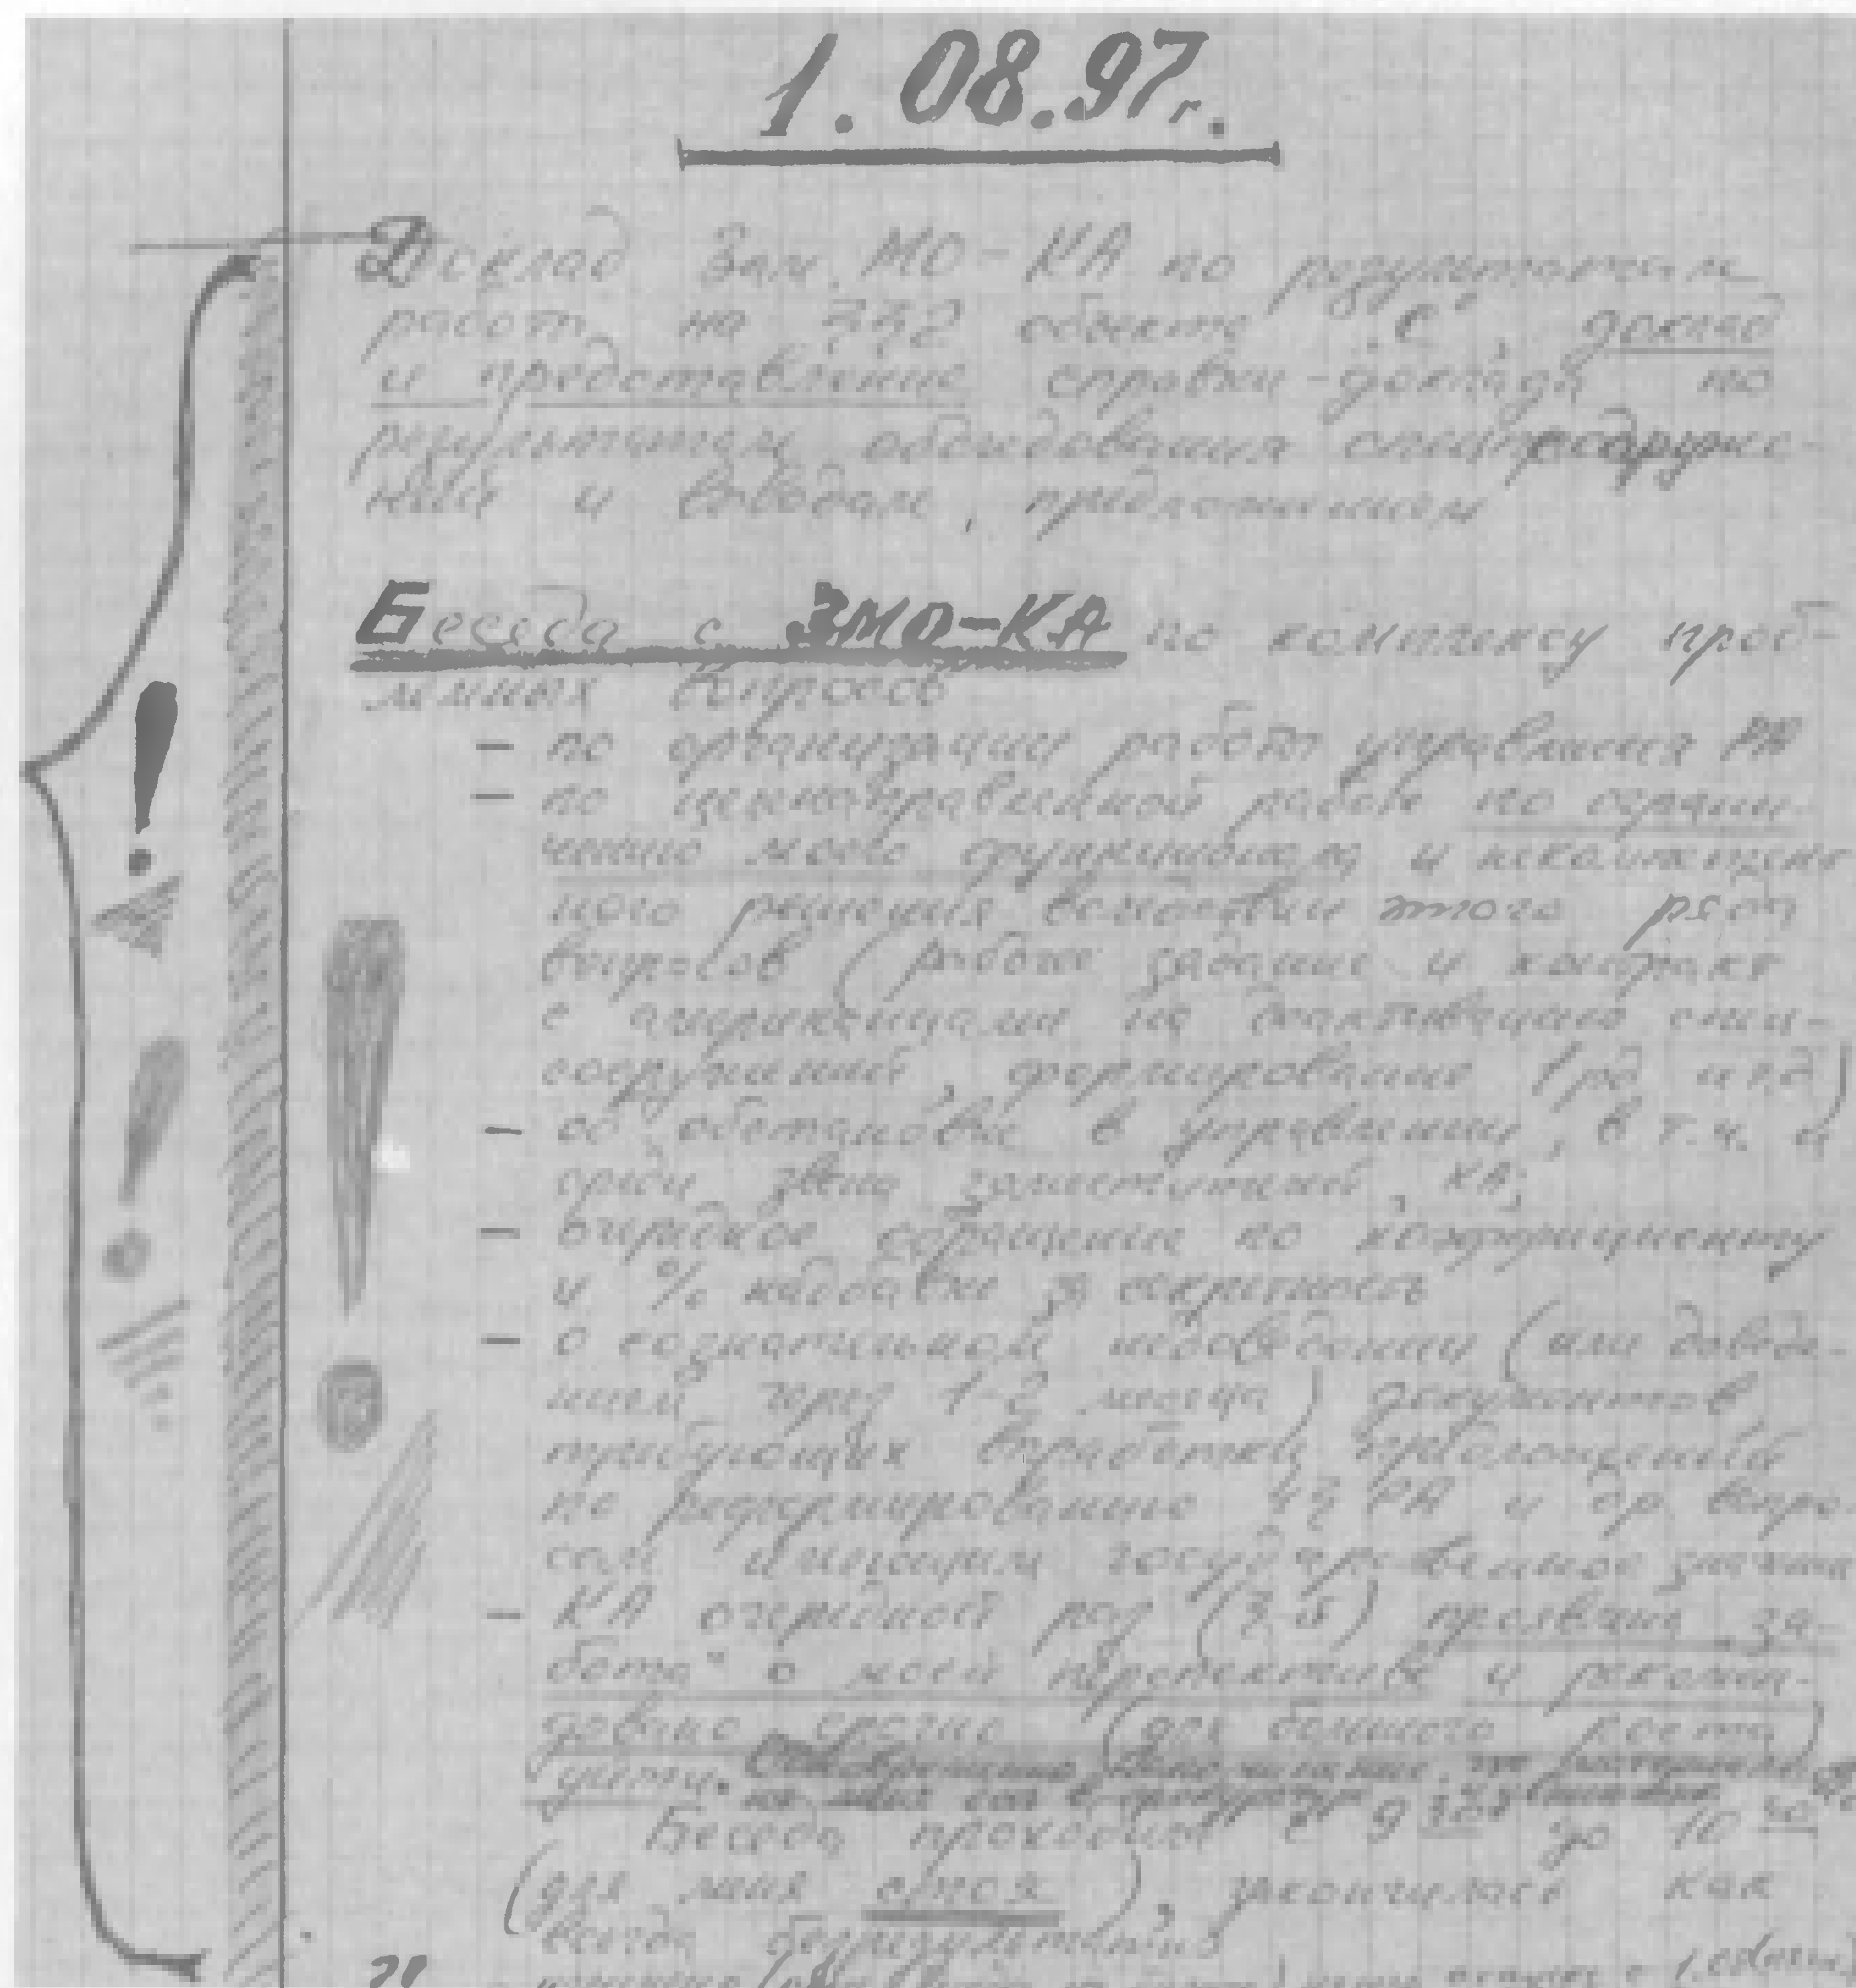 1.08.97г.
Доклад Зам. МО-КА по результатам
работ на 332 объекте "С", доклад
и представление справки-доклада по
результатам обследования спецсооруже-
ний и выводам, предложениям
Беседа с ЗМО-КА по комплексу проб-
лемных вопросов
- по организации работ управления РА
- по целенаправленной работе по ограни-
чению моего функционала и некомпетент
ного решения вследствии этого ряда
вопросов (рабочее задание и контракт
с американцами на деактивацию спец-
сооружений, формирование 1рд и т.д)
- об обстановке в управлении, в т.ч. и
среди звена заместителей, КА;
- очередное обращение по коэффициенту
и % надбавке за секретность
- о сознательном недоведении (или доведе-
нием через 1-2 месяца) документов,
требующих выработки предложений
по реформированию ЧЗ РА и др. вопро-
сам имеющим государственное значение
- КА очередной раз (3-й) проявлена "за-
бота" о моей перспективе и рекомен-
довано срочно (для большего роста)
уйти.
Беседа проходила с 9 30 до 10 30
(для меня стоя), закончилась как
всегда безрезультатно